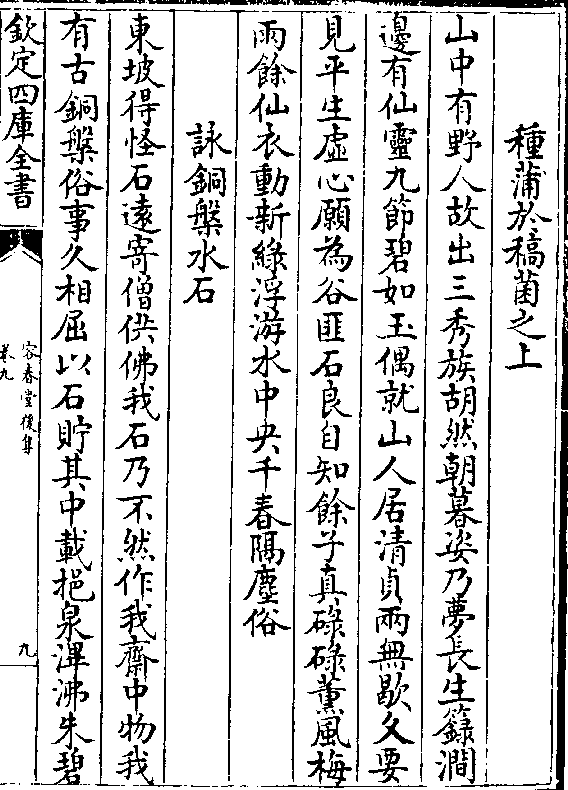 種蒲於稿菌之上
山中有野人故出三秀族胡然朝暮姿乃夢長生籙澗
邊有仙靈九節碧如玉偶就山人居清貞兩無歇久要
見平生虛心願為谷匪石良自知餘子真碌碌薰風梅
雨餘仙衣動新綠浮游水中央千春隔塵俗
詠銅槃水石
東坡得怪石遠寄僧供佛我石乃不然作我齋中物我
有古銅槃俗事久相屈以石貯其中載挹泉渾沸朱碧
欽定四庫全書
容春堂後集
卷九
九